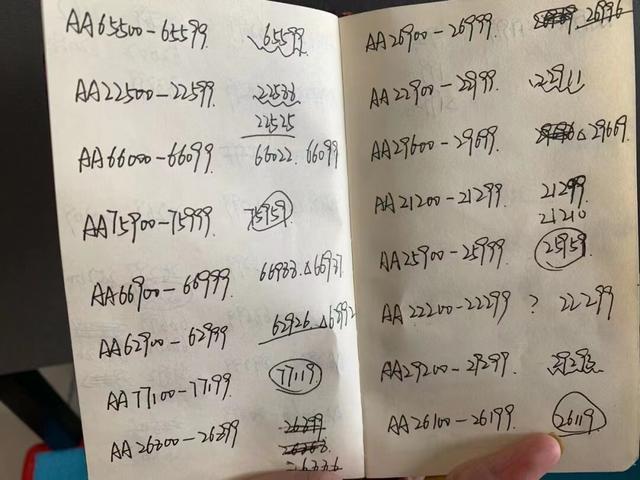 AA65500-65599. 65599
AA22500-22599. 22522
22525
AA66000-66099 66022. 66099
AA75900-75999. 75959
AA66900-66999. 66933. △66937.
AA62900-62999 62926. △62992
AA77100-77199. 77119
AA26300-26399 26399
26336
AA26900-26999. 26996
AA22900-22999. 22911
AA29600-29699. △29669.
AA21200-21299. 21299
21210
AA25900-25999. 25959
AA22200-22299 ? 22299
AA29200-29299. 29292
AA26100-26199. 26119